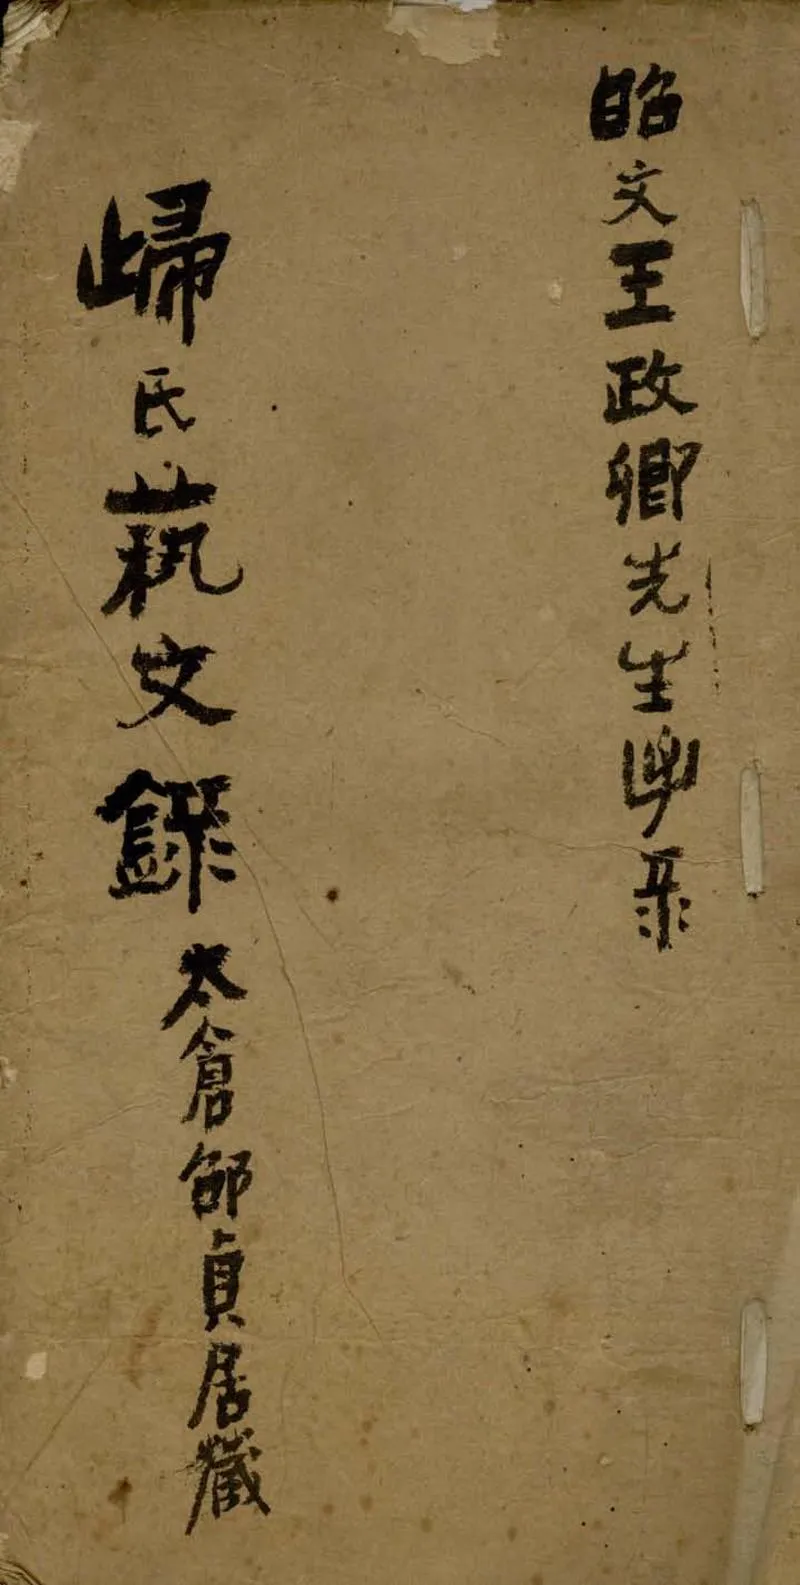 昭文王政卿先生彔
歸氏藝文錄
太倉邵貞居藏